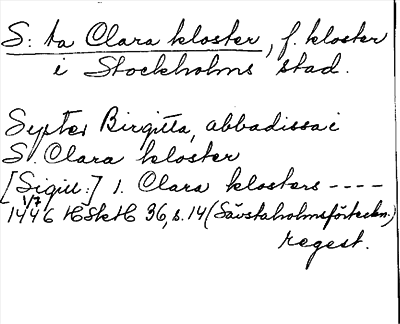 S:ta Clara kloster, f. kloster
i Stockholms stad.
Syster Birgitta, abbadissa i
S. Clara kloster
[Sigill:] 1. Clara klosters ----
1/7
1446 HSH 36, s. 14 (Sävstaholmsförteckn.)
regest.